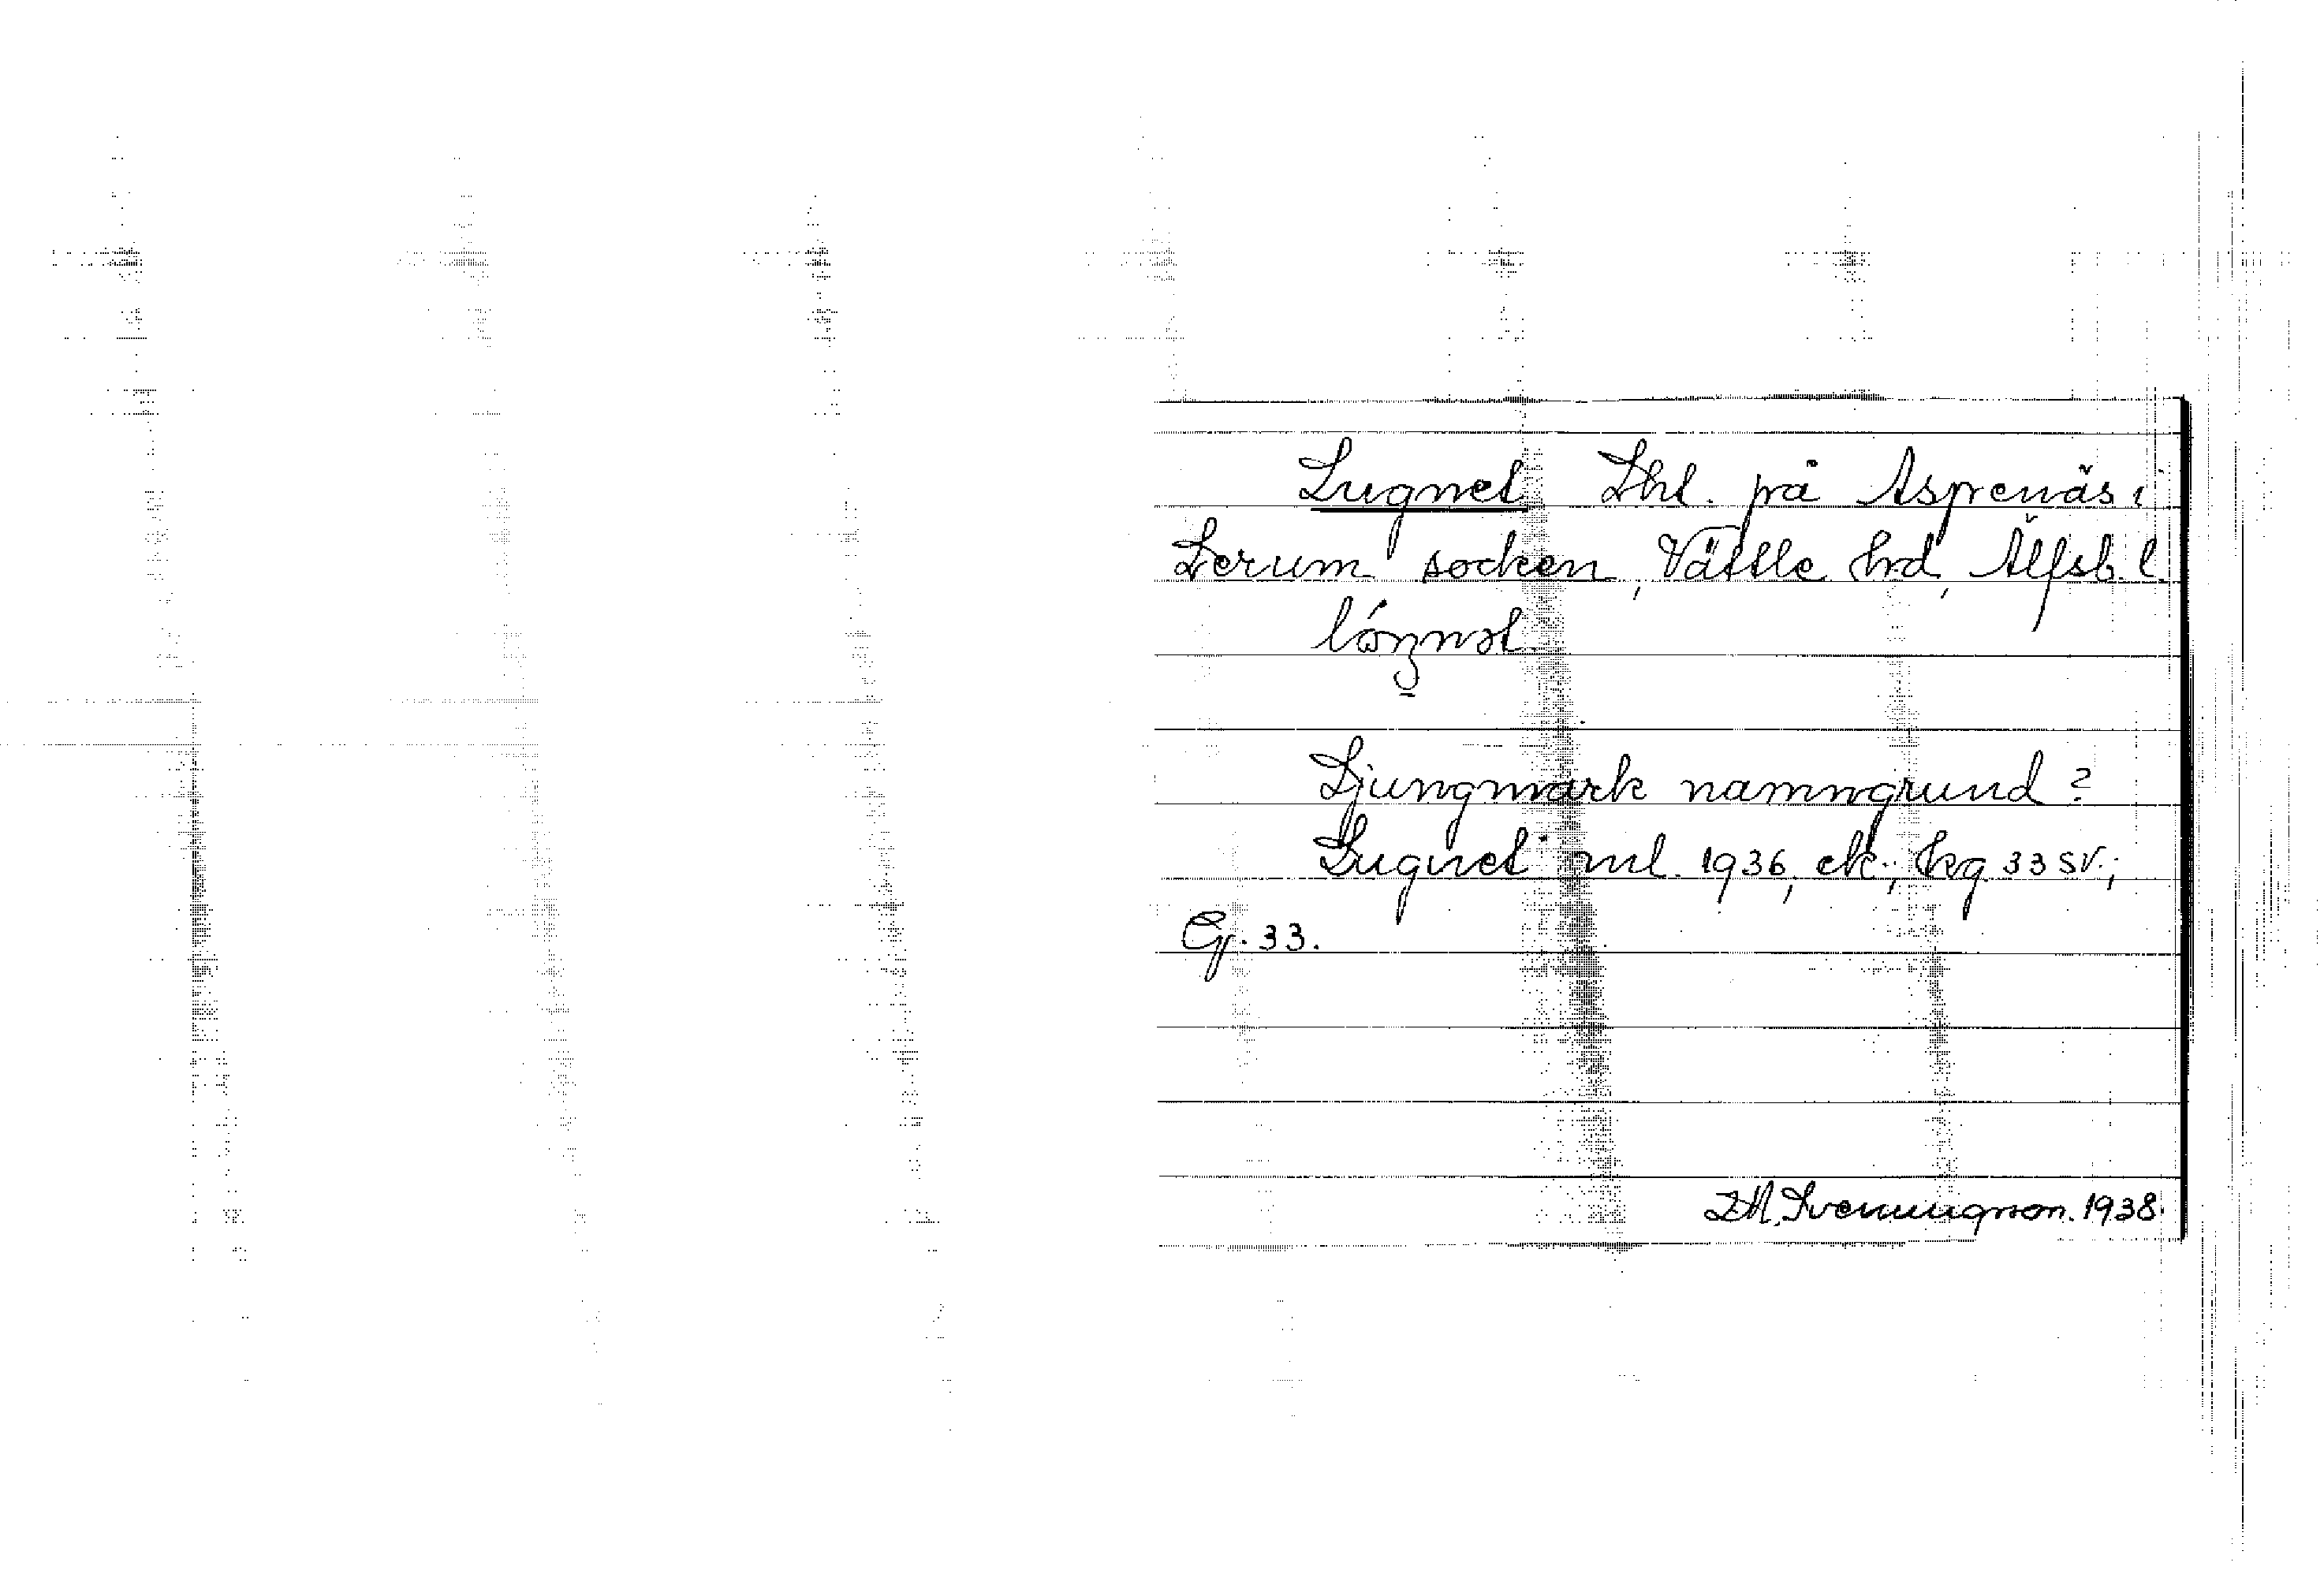 Lugnet Lht. på Aspenäs i
Lerum socken, Vättle hrd, Älfsb. l.
Ljungmark namngrund?
Lugnet ml. 1936, ek., hg 33 SV.;
Gj. 33.
Svenningson. 1938.